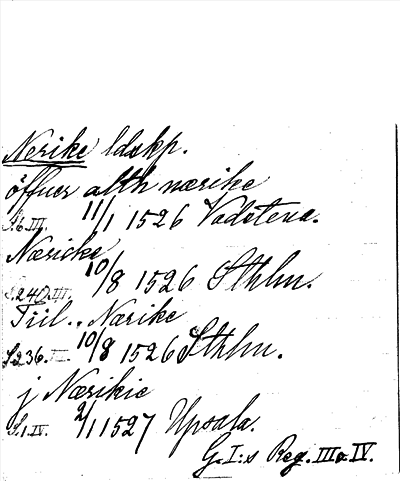 Nerike ldskp.
öffuer alth nærike
S.6.III. 11/1 1526 Vadstena.
Næricke
S.240.III. 10/8 1526 Sthlm.
Tiil.. Nærike
S.236. 10/8 1526 Sthlm.
j Nærikie
S.1.IV. 2/1 1527 Upsala.
G.I:s Reg. III o. IV.